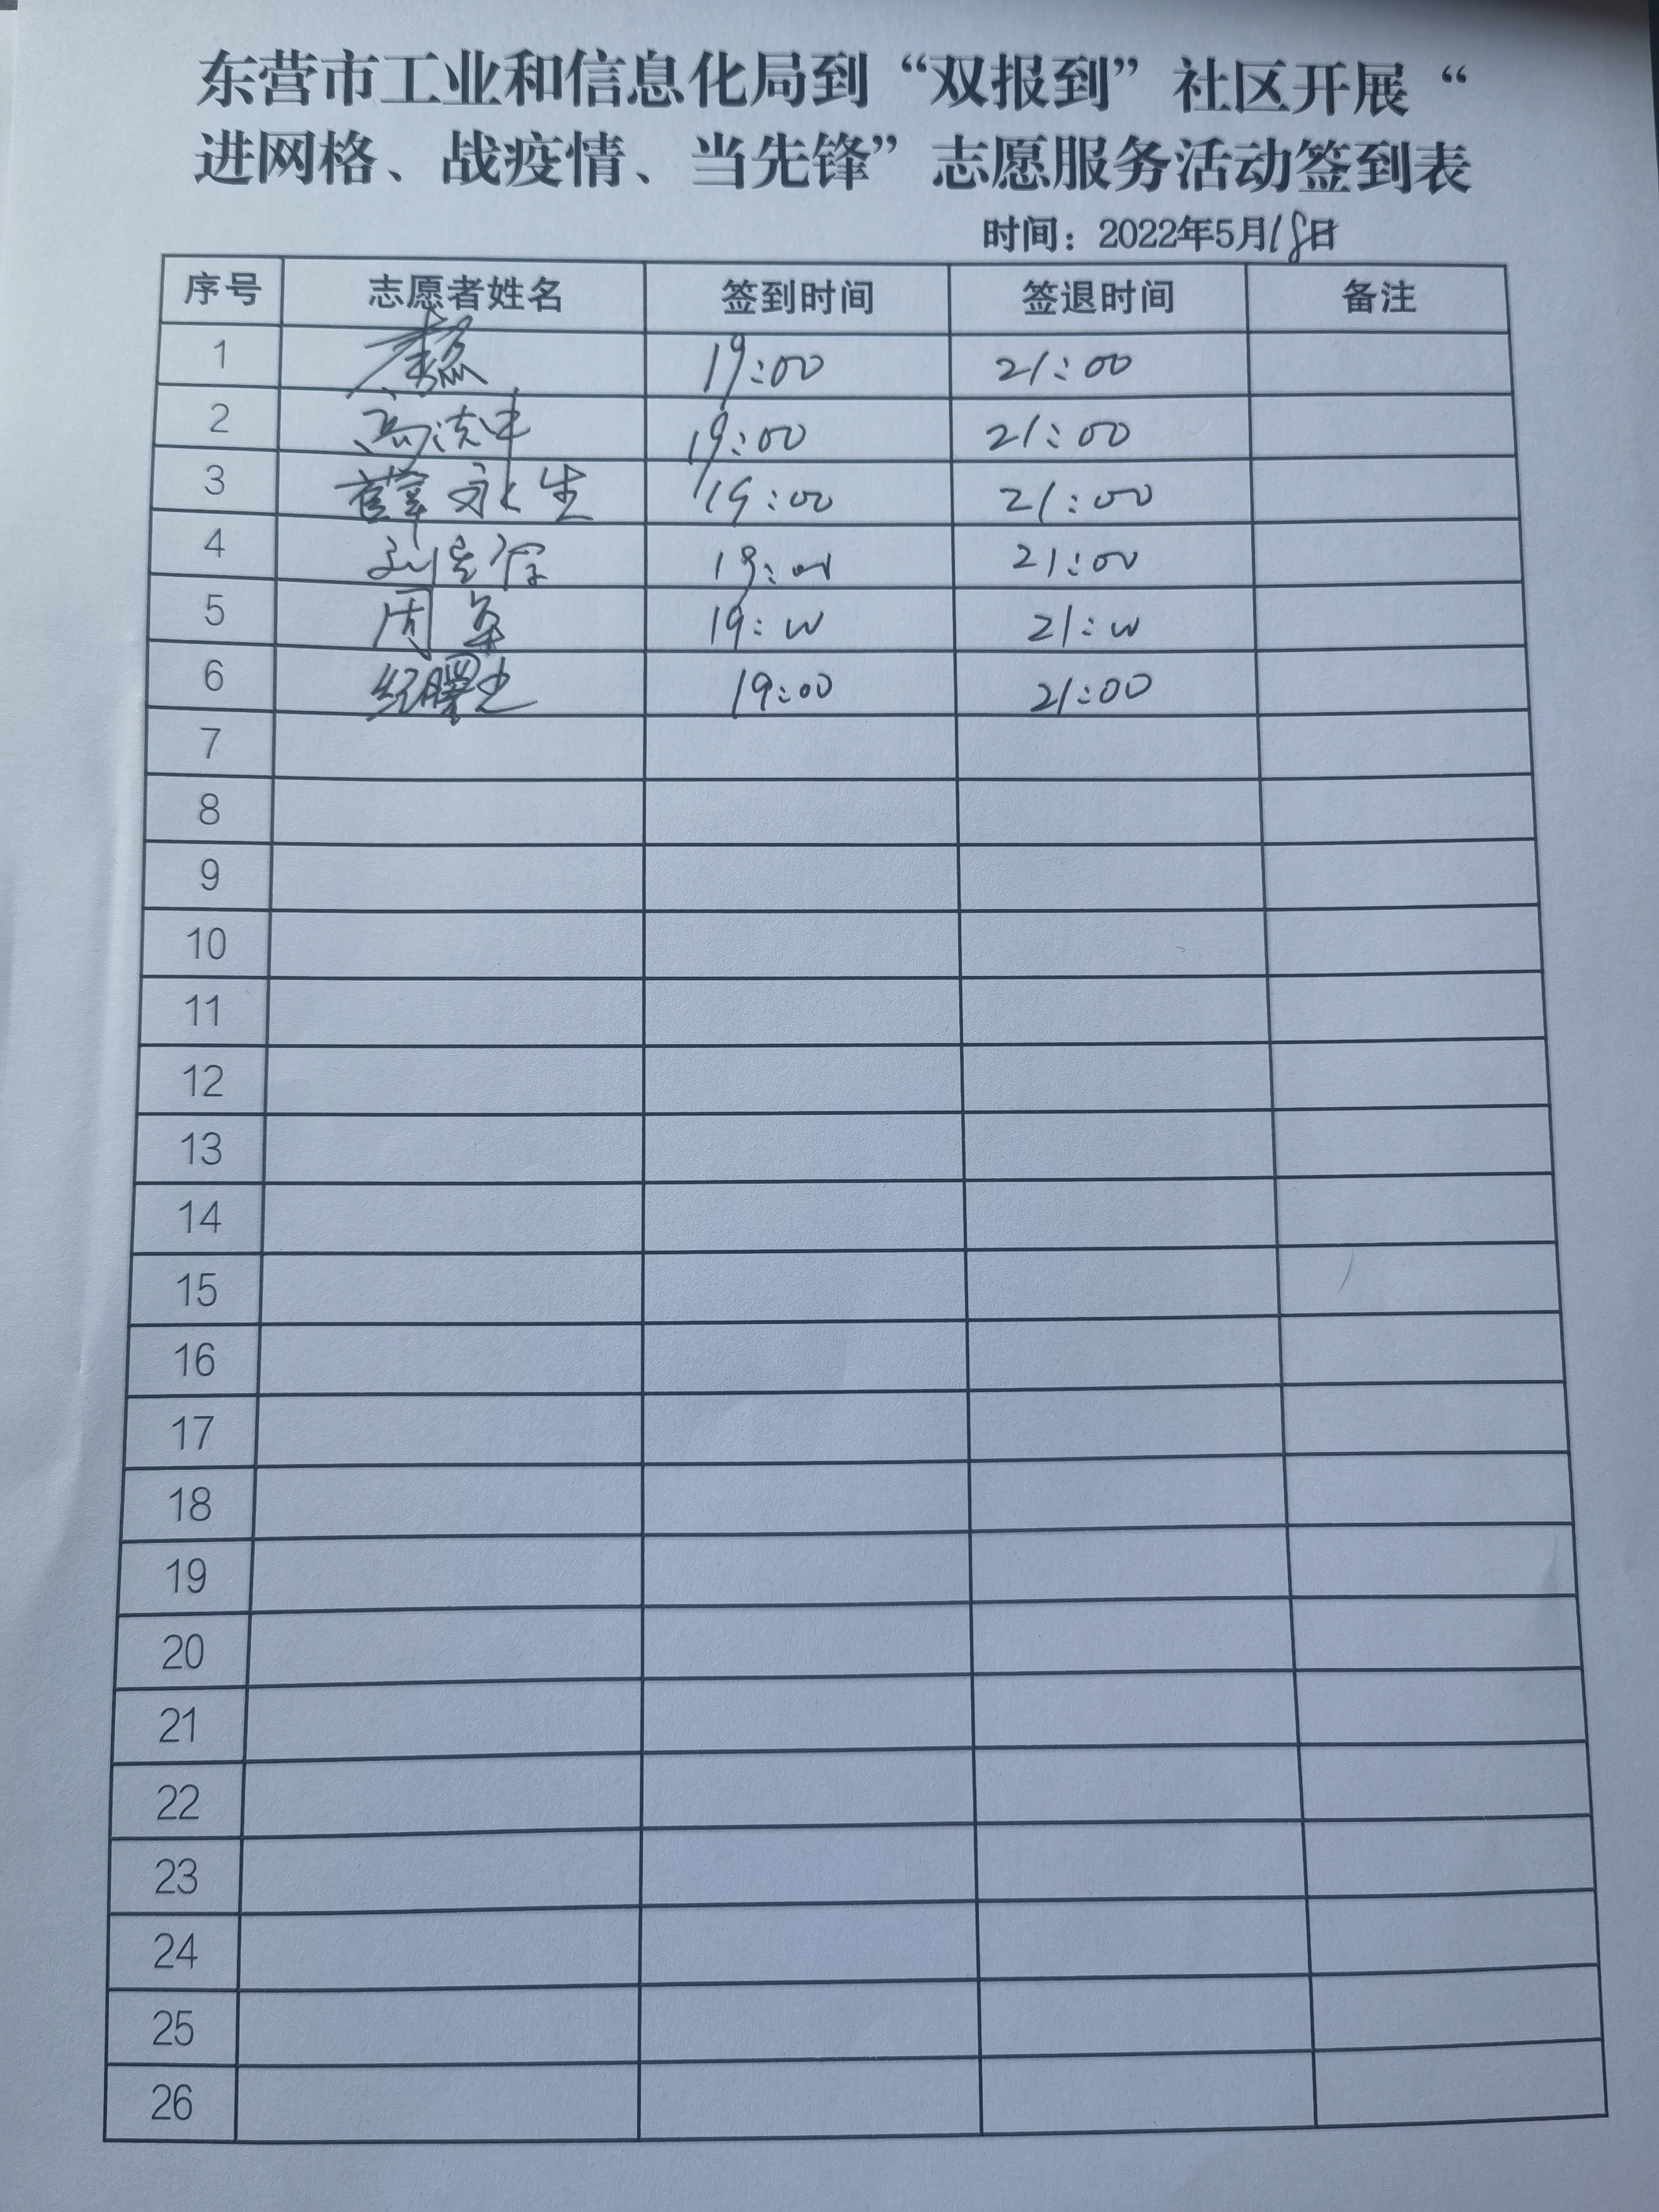 东营市工业和信息化局到“双报到”社区开展“
进网格、战疫情、当先锋”志愿服务活动签到表
时间：2022年5月18日
序号 志愿者姓名 签到时间 签退时间 备注
1 19:00 21:00
2 19:00 21:00
3 薛永生 19:00 21:00
4 19:00 21:00
5 周 19:00 21:00
6 19:00 21:00
7
8
9
10
11
12
13
14
15
16
17
18
19
20
21
22
23
24
25
26